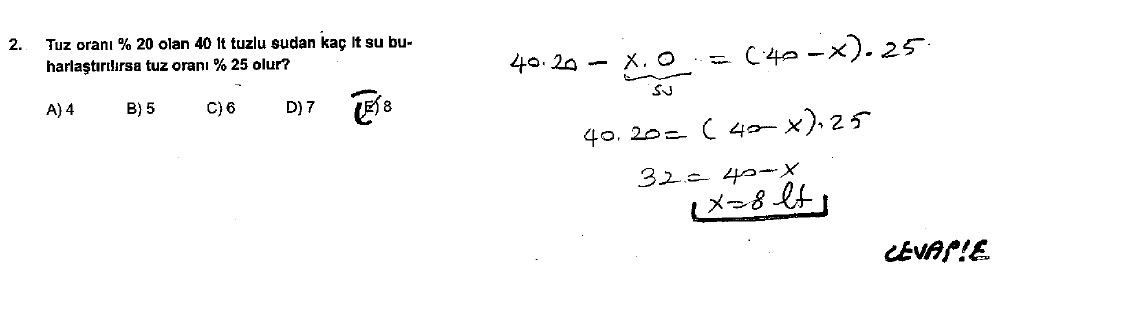 2. Tuz oranı % 20 olan 40 lt tuzlu sudan kaç lt su bu-
harlaştırılırsa tuz oranı % 25 olur?
A) 4 B) 5 C) 6 D) 7 E) 8
40.20 - x.0 = (40-x).25
su
40.20 = (40-x).25
32 = 40-x
x=8 lt
CEVAP:E